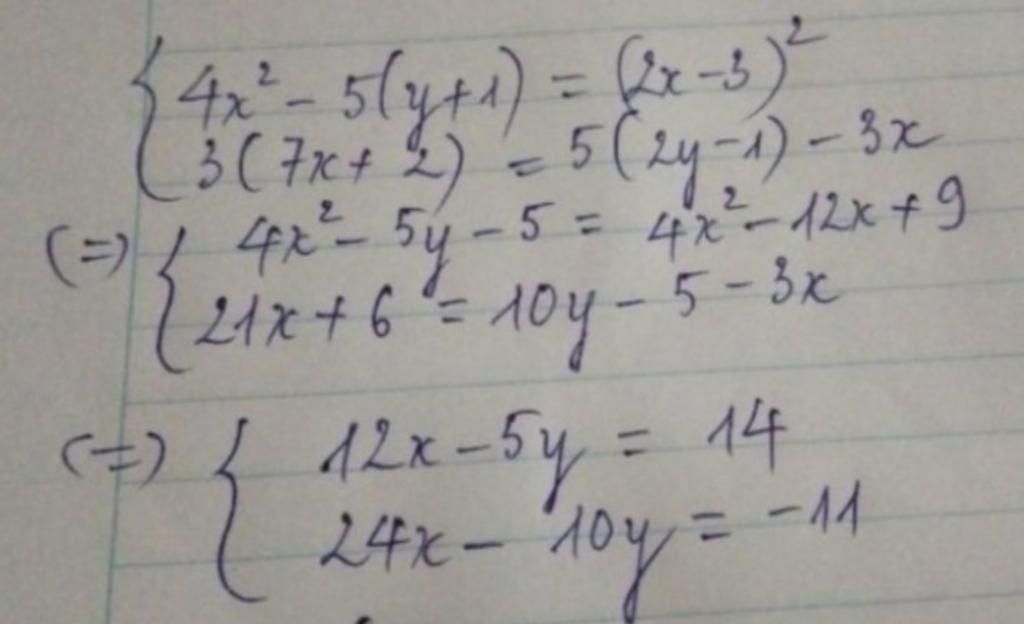 { 4x² - 5(y+1) = (2x-3)²
3(7x+2) = 5(2y-1) - 3x
(=) { 4x² - 5y - 5 = 4x² - 12x + 9
21x + 6 = 10y - 5 - 3x
(=) { 12x - 5y = 14
24x - 10y = -11